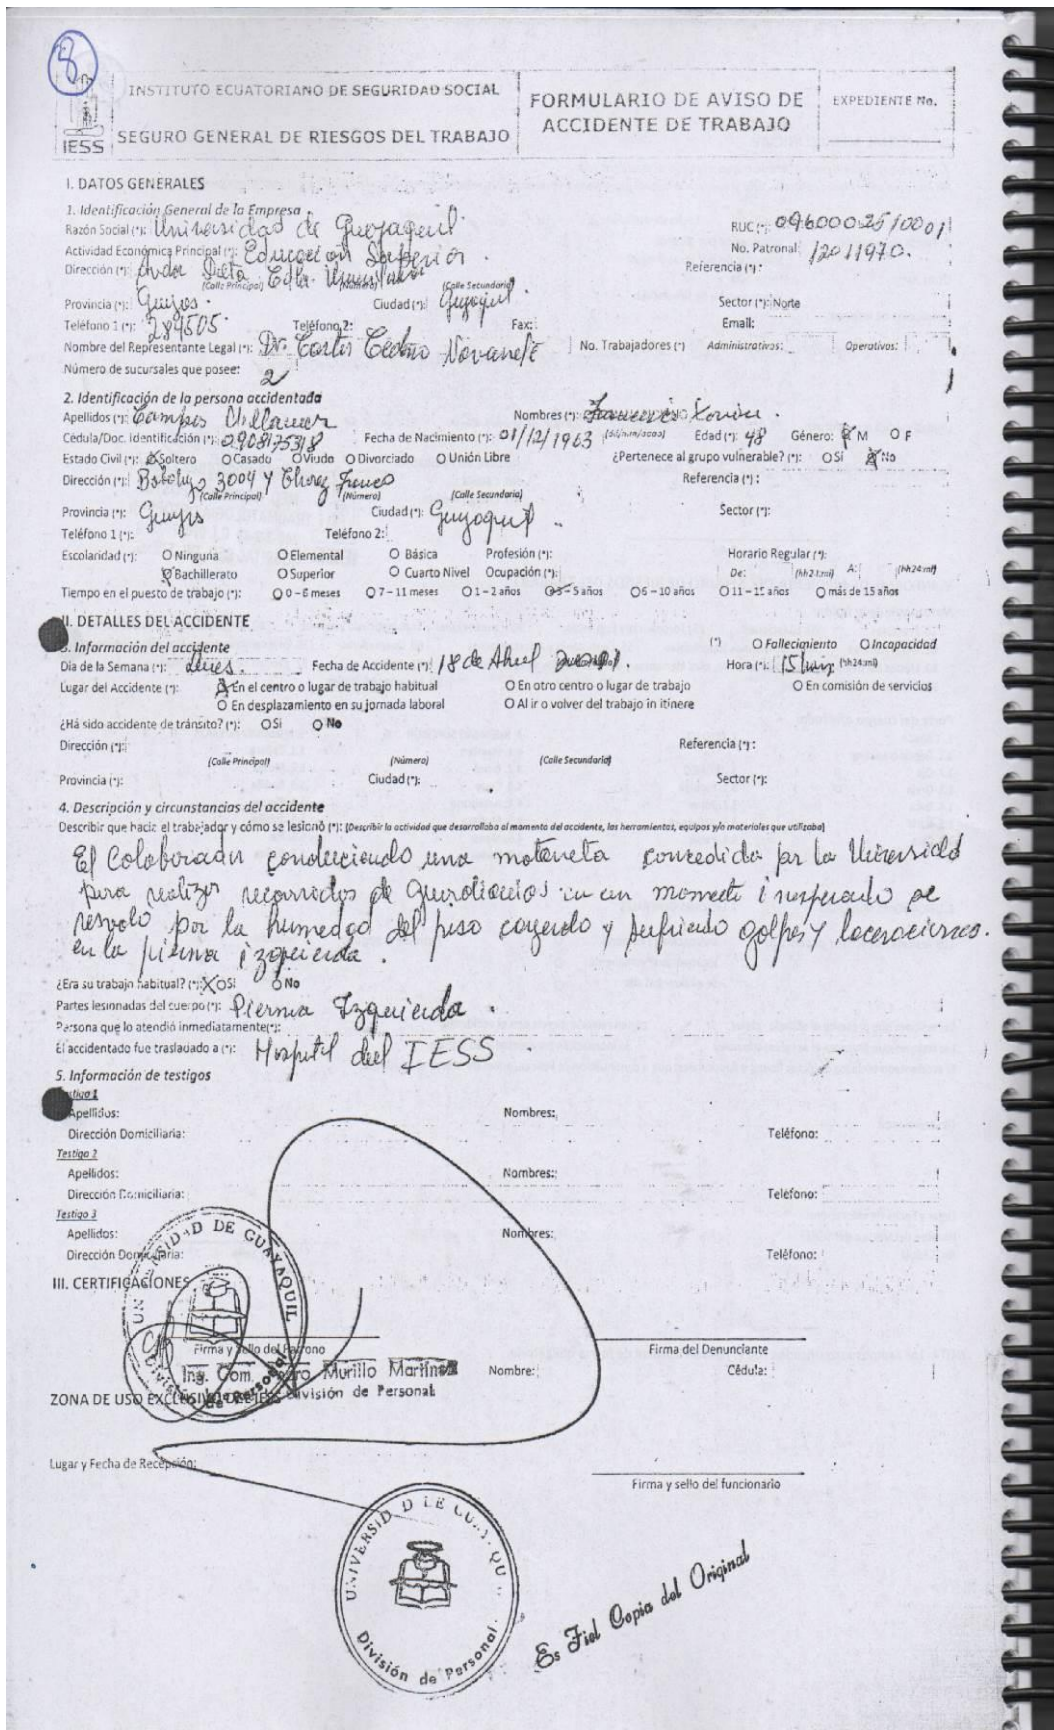 8
IESS
INSTITUTO ECUATORIANO DE SEGURIDAD SOCIAL
SEGURO GENERAL DE RIESGOS DEL TRABAJO
FORMULARIO DE AVISO DE
ACCIDENTE DE TRABAJO
EXPEDIENTE No.
I. DATOS GENERALES
1. Identificación General de la Empresa
Razón Social (*): Universidad de Guayaquil RUC (*): 0960002510001
Actividad Económica Principal (*): Educación Superior. No. Patronal: 12011970.
Dirección (*): Avda Delta Cdla. Referencia (*):
(Calle Principal) (Número) (Calle Secundaria)
Provincia (*): Guayas. Ciudad (*): Guayaquil. Sector (*): Norte
Teléfono 1 (*): 289505. Teléfono 2: Fax: Email:
Nombre del Representante Legal (*): Dr. Carlos Cedeño No. Trabajadores (*) Administrativos: Operativos:
Número de sucursales que posee: 2
2. Identificación de la persona accidentada
Apellidos (*): Campos Nombres (*): Xavier.
Cédula/Doc. Identificación (*): 0908175318 Fecha de Nacimiento (*): 01/12/1963 (dd/mm/aaaa) Edad (*): 48 Género: M F
Estado Civil (*): Soltero Casado Viudo Divorciado Unión Libre ¿Pertenece al grupo vulnerable? (*): Sí No
Dirección (*): 3004 y Franco Referencia (*):
(Calle Principal) (Número) (Calle Secundaria)
Provincia (*): Guayas Ciudad (*): Guayaquil. Sector (*):
Teléfono 1 (*): Teléfono 2:
Escolaridad (*): Ninguna Elemental Básica Profesión (*): Horario Regular (*):
Bachillerato Superior Cuarto Nivel Ocupación (*): De: (hh24:mi) A: (hh24:mi)
Tiempo en el puesto de trabajo (*): 0 – 6 meses 7 – 11 meses 1 – 2 años 3 – 5 años 6 – 10 años 11 – 15 años más de 15 años
II. DETALLES DEL ACCIDENTE
3. Información del accidente (*) Fallecimiento Incapacidad
Día de la Semana (*): Lunes. Fecha de Accidente (*): 18 de Abril Hora (*): 15 (hh24:mi)
Lugar del Accidente (*): En el centro o lugar de trabajo habitual En otro centro o lugar de trabajo En comisión de servicios
En desplazamiento en su jornada laboral Al ir o volver del trabajo in itinere
¿Há sido accidente de tránsito? (*): Sí No
Dirección (*): Referencia (*):
(Calle Principal) (Número) (Calle Secundaria)
Provincia (*): Ciudad (*): Sector (*):
4. Descripción y circunstancias del accidente
Describir que hacía el trabajador y cómo se lesionó (*): [Describir la actividad que desarrollaba al momento del accidente, las herramientas, equipos y/o materiales que utilizaba]
El Colaborador conduciendo una motoneta concedida por la Universidad
para realizar recorridos de Guardianias en un momento inesperado se
resvalo por la humedad del piso cayendo y sufriendo golpes y laceraciones.
en la pierna izquierda.
¿Era su trabajo habitual? (*): Sí No
Partes lesionadas del cuerpo (*): Pierna Izquierda.
Persona que lo atendió inmediatamente(*):
El accidentado fue trasladado a (*): Hospital del IESS.
5. Información de testigos
Testigo 1
Apellidos: Nombres:
Dirección Domiciliaria: Teléfono:
Testigo 2
Apellidos: Nombres:
Dirección Domiciliaria: Teléfono:
Testigo 3
Apellidos: Nombres:
Dirección Domiciliaria: Teléfono:
III. CERTIFICACIONES
UNIVERSIDAD DE GUAYAQUIL
División de Personal
Firma y Sello del Patrono Firma del Denunciante
Ing. Com. Murillo Martínez Nombre: Cédula:
División de Personal
ZONA DE USO EXCLUSIVO DEL IESS
Lugar y Fecha de Recepción:
Firma y sello del funcionario
UNIVERSID D DE GUAY QU
División de Personal
Es Fiel Copia del Original